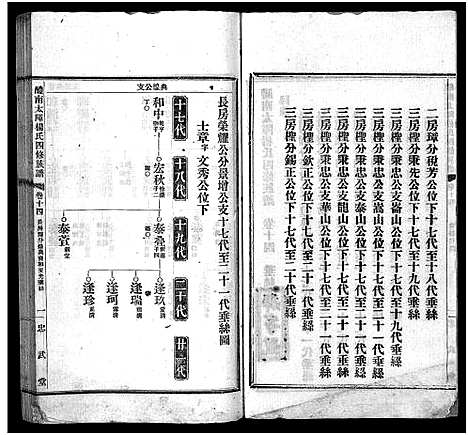 二房璋分稅芳公位下十七代至十八代垂絲
三房樫分秉先公位下十七代至十九代垂絲
三房樫分秉忠公支崙山公位下十七代至十九代垂絲
三房樫分秉忠公支嵩山公位下十七代至二十一代垂絲
三房樫分秉忠公支泰山公位下十七代至二十一代垂絲
三房樫分秉忠公支龍山公位下十七代至二十一代垂絲
三房樫分秉忠公支華山公位下十七代至二十一代垂絲
三房樫分欽正公位下十七代至二十一代垂絲
三房樫分錫正公位下十七代至二十一代垂絲
長房榮耀公分景增公支十七代至二十一代垂絲圖
士章字文秀公位下
十七代
十八代
十九代
二十代
廿一代
和中
宏秋
泰桑
泰萱
逢玖
逢瑞
逢珂
逢珍
典煌公支
醴南太陽楊氏四修族譜
卷十四
一
忠武堂